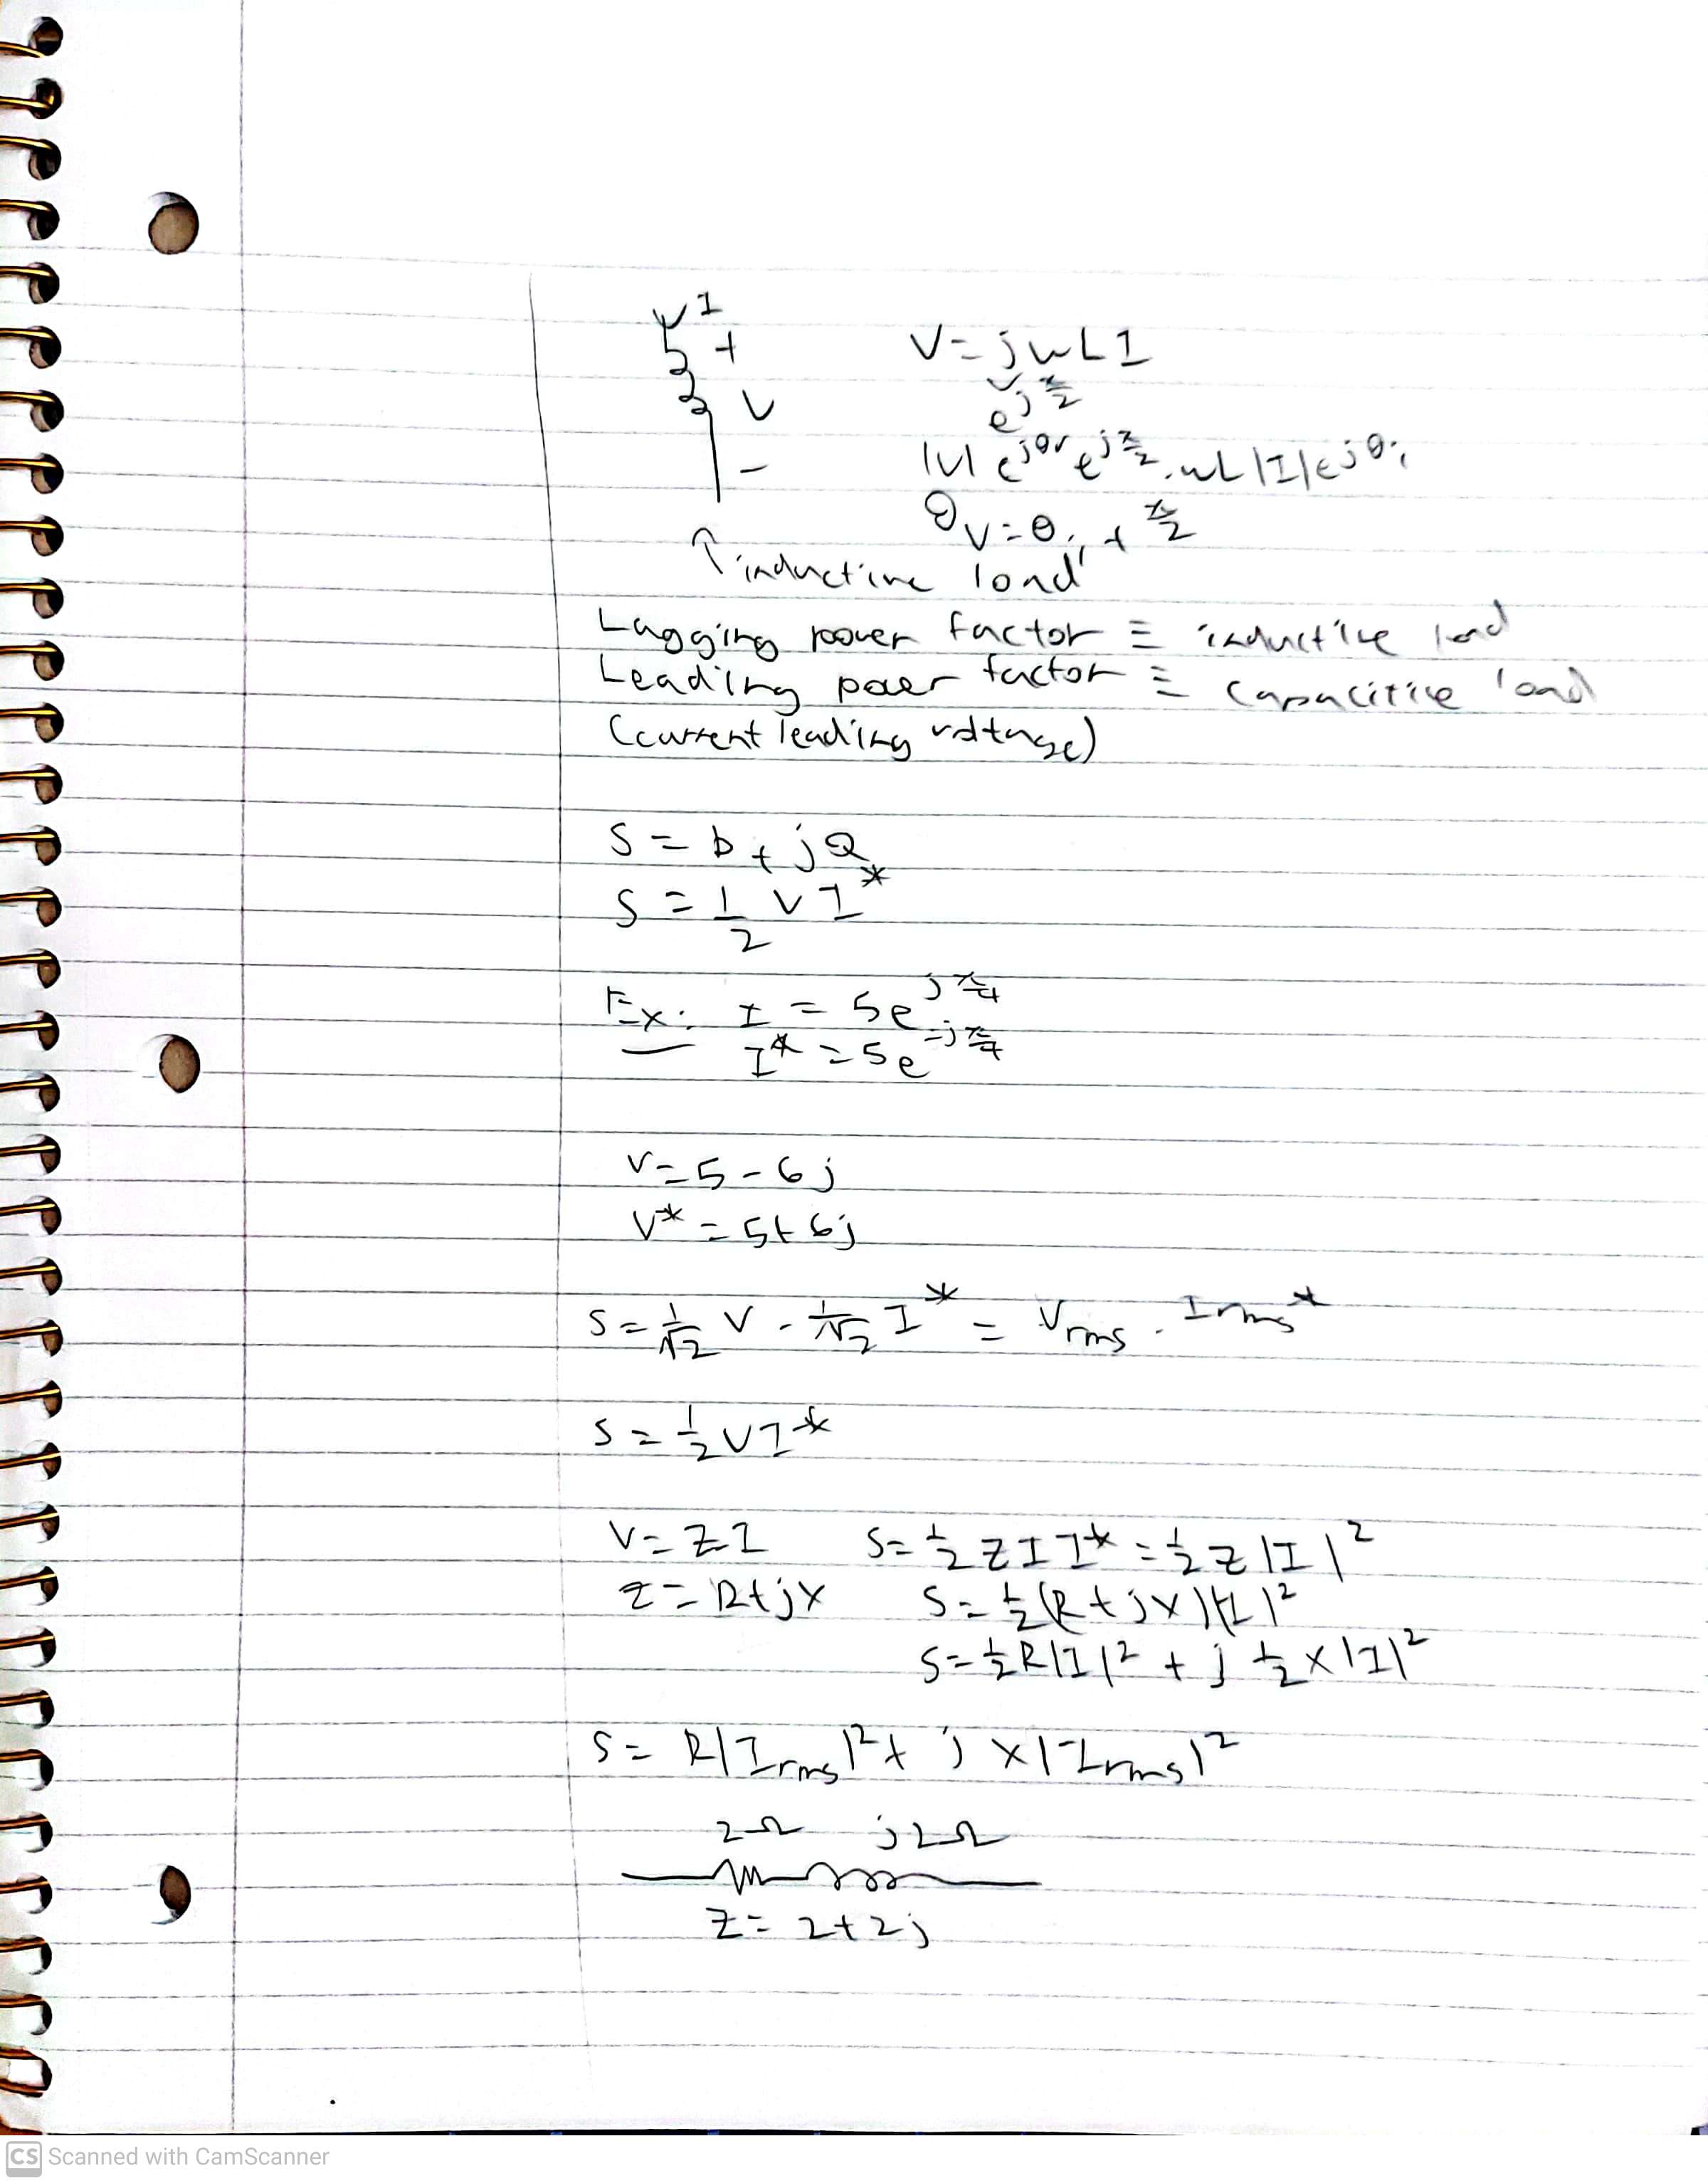 I
+
V
-
V = jωLI
e^{jπ/2}
|V| e^{jθv} e^{jπ/2} . ωL |I| e^{jθi}
θv = θi + π/2
↑ inductive load
Lagging power factor ≡ inductive load
Leading power factor ≡ capacitive load
(current leading voltage)
S = P + jQ
S = 1/2 V I*
Ex: I = 5e^{jπ/4}
I* = 5e^{-jπ/4}
V = 5 - 6j
V* = 5 + 6j
S = 1/√2 V · 1/√2 I* = Vrms · Irms*
S = 1/2 V I*
V = ZI S = 1/2 Z I I* = 1/2 Z |I|²
Z = R + jX S = 1/2 (R + jX) |I|²
S = 1/2 R |I|² + j 1/2 X |I|²
S = R |Irms|² + j X |Irms|²
2Ω j2Ω
Z = 2 + 2j
CS Scanned with CamScanner